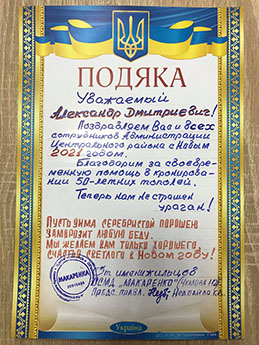 ПОДЯКА
Уважаемый
Александр Дмитриевич!
Поздравляем Вас и всех
сотрудников Администрации
Центрального района с Новым
2021 годом.
Благодарим за своевре-
менную помощь в кронирова-
нии 50-летних тополей.
Теперь нам не страшен
ураган!
Пусть зима серебристой порошей
заморозит любую беду.
Мы желаем вам только хорошего
счастья светлого в Новом году!
От имени жильцов
ОСМД "МАКАРЕНКО"
Предс.
МАКАРЕНКО
Україна